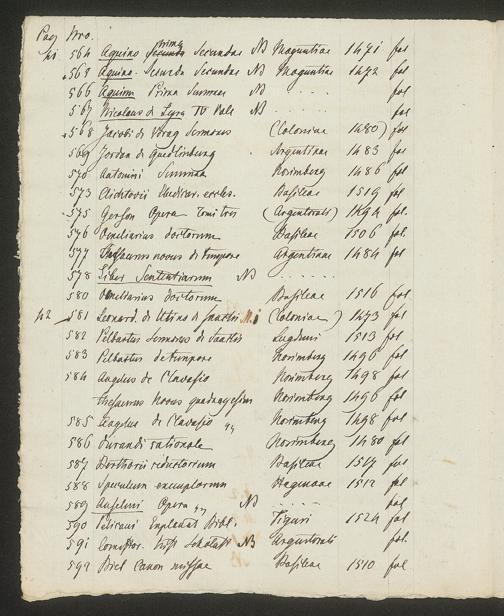 Pag Nro.
41 564 Aquino prima Secundae NB Moguntiae 1471 fol
565 Aquino. Secunda Secundae NB Moguntiae 1472 fol
566 Aquin Prima Summae NB ..... fol
567 Nicolaus de Lyra IV Pars NB ..... fol
568 Jacobi de Vorag Sermones (Coloniae 1480) fol
569 Jordan de Quedlinburg Argentinae 1483 fol
570 Antonini Summa Norimberg 1486 fol
573 Clichtovei eccles. Basileae 1519 fol
575 Gerson Opera Tomi tres (Argentorati) 1494 fol.
576 Homeliarius doctorum Basileae 1506 fol
577 Thesaurus novus de tempore Argentinae 1484 fol
578 Liber Sententiarum NB ......
580 Homeliarius doctorum Basileae 1516 fol
42 581 Leonard. de Utino de Sanctis (Coloniae ) 1473 fol
582 Pelbartus Sermones de Sanctis Lugduni 1513 fol
583 Pelbartus de tempore Norimberg 1496 fol
584 Angelus de Clavasio Norimberg 1498 fol
thesaurus novus quadragesim Norimberg 1496 fol
585 Angelus de Clavasio Norimberg 1498 fol
586 Durandi rationale Norimberg 1480 fol
587 Berthorii reductorium Basileae 1517 fol
588 Speculum exemplorum Hagenoae 1512 fol
589 Anselmi Opera NB ..... fol
590 Pelicani Explanat Bibl. Tiguri 1524 fol
591 Comestor. hist Scholast NB Argentorati fol.
592 Biel Canon missae Basileae 1510 fol